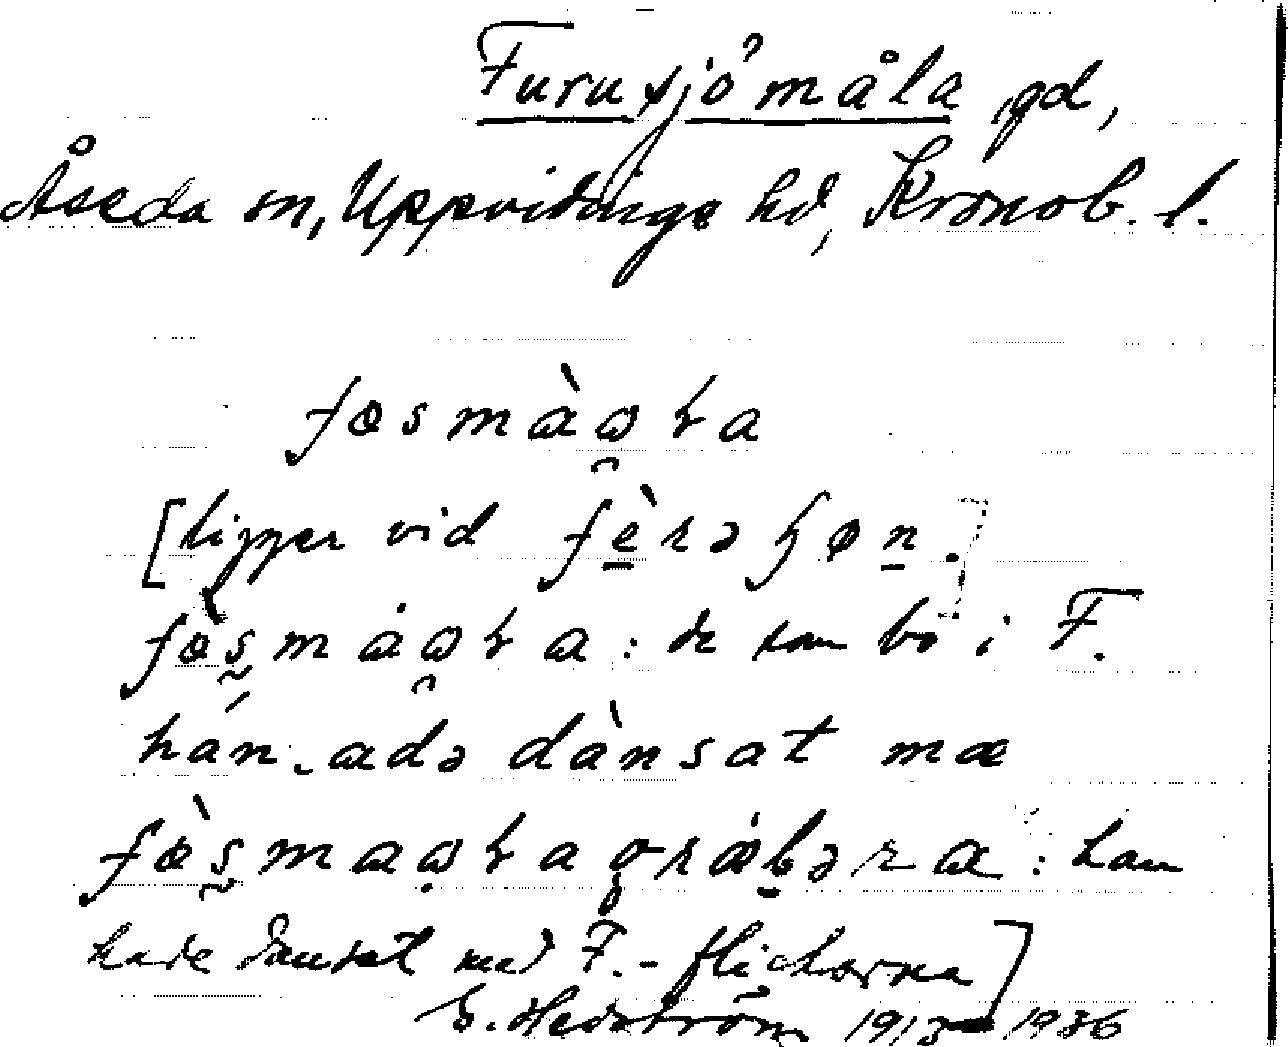 Furusjömåla gd,
Åseda sn, Uppvidinge hd, Kronob. l.
fɵsmàɷɬa
[ligger vid fèrəɧøn.]
fɵ̀s̰máɷɬa: de som bo i F.
hán‿adə dànsat mæ
fɵ̀s̰maɷɬagræ̀bəra: han
hade dansat med F.-flickorna]
G. Hedström 1913-1936